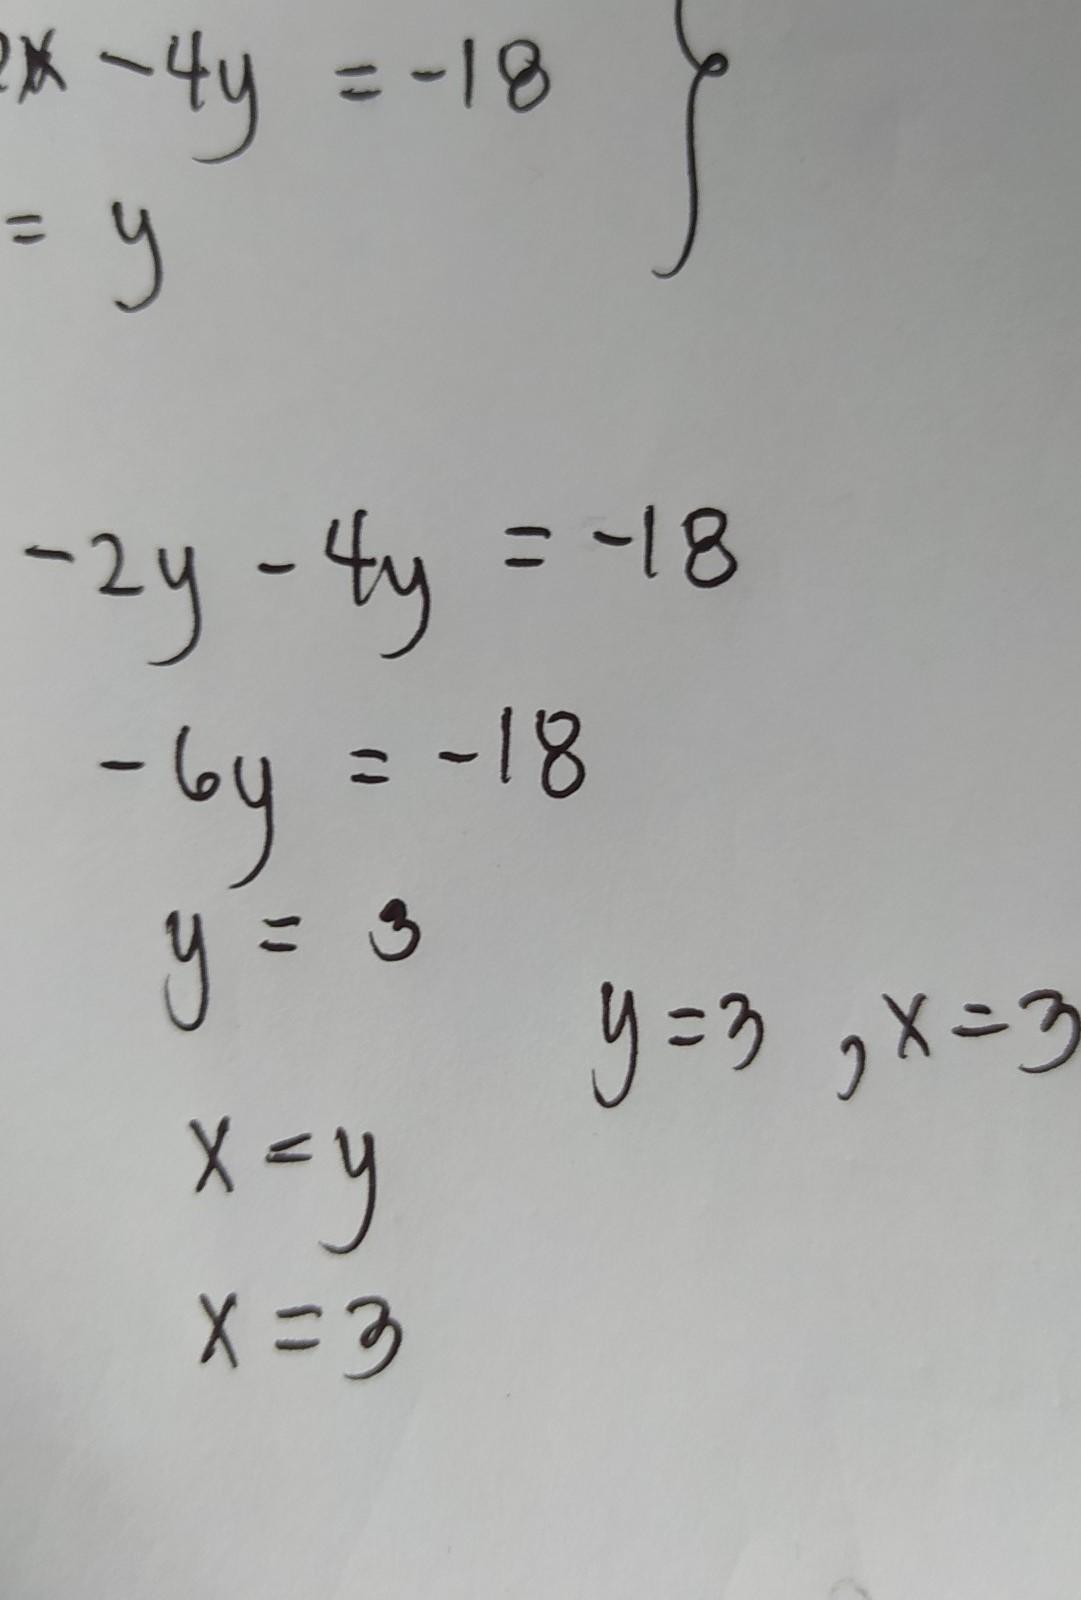 2x - 4y = -18 }
= y
-2y - 4y = -18
-6y = -18
y = 3
y = 3 , x = 3
x = y
x = 3